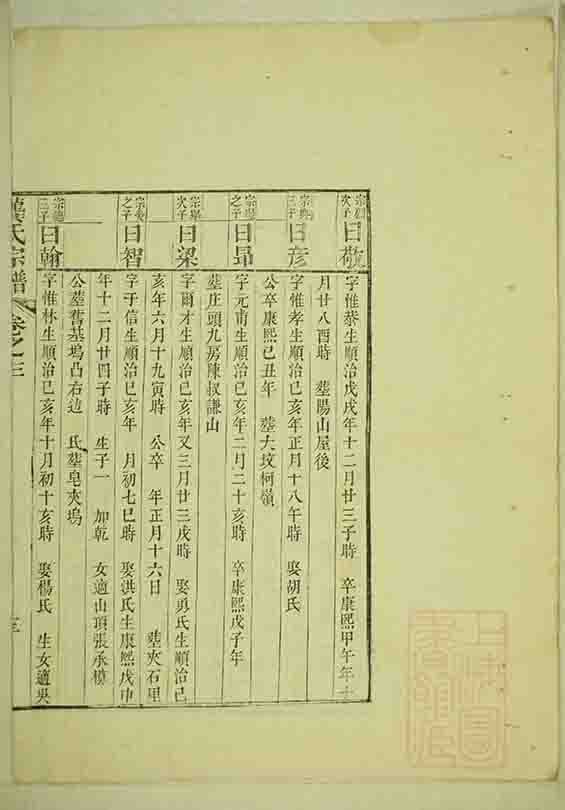 次子 曰敬 字惟恭生順治戊戌年十二月廿三子時 卒康熙甲午年十
月廿八酉時 塟陽山屋後
三子 曰彦 字惟孝生順治己亥年正月十八午時 娶胡氏
公卒康熙己丑年 塟大坟柯嶺
之子 曰昴 字元甫生順治己亥年二月二十亥時 卒康熙戊子年
塟庄頭九房陳叔謙山
次子 曰梁 字爾才生順治己亥年又三月廿三戌時 娶勇氏生順治己
亥年六月十九寅時 公卒 年正月十六日 塟夾石里
之子 曰智 字于信生順治己亥年 月初七巳時 娶洪氏生康熙戊申
年十二月廿四子時 生子一 加乾 女適山頂張承模
公塟舊基塢凸右边 氏塟皂夾塢
三子 曰翰 字惟林生順治己亥年十月初十亥時 娶楊氏 生女適吳
氏宗譜 卷之三 三